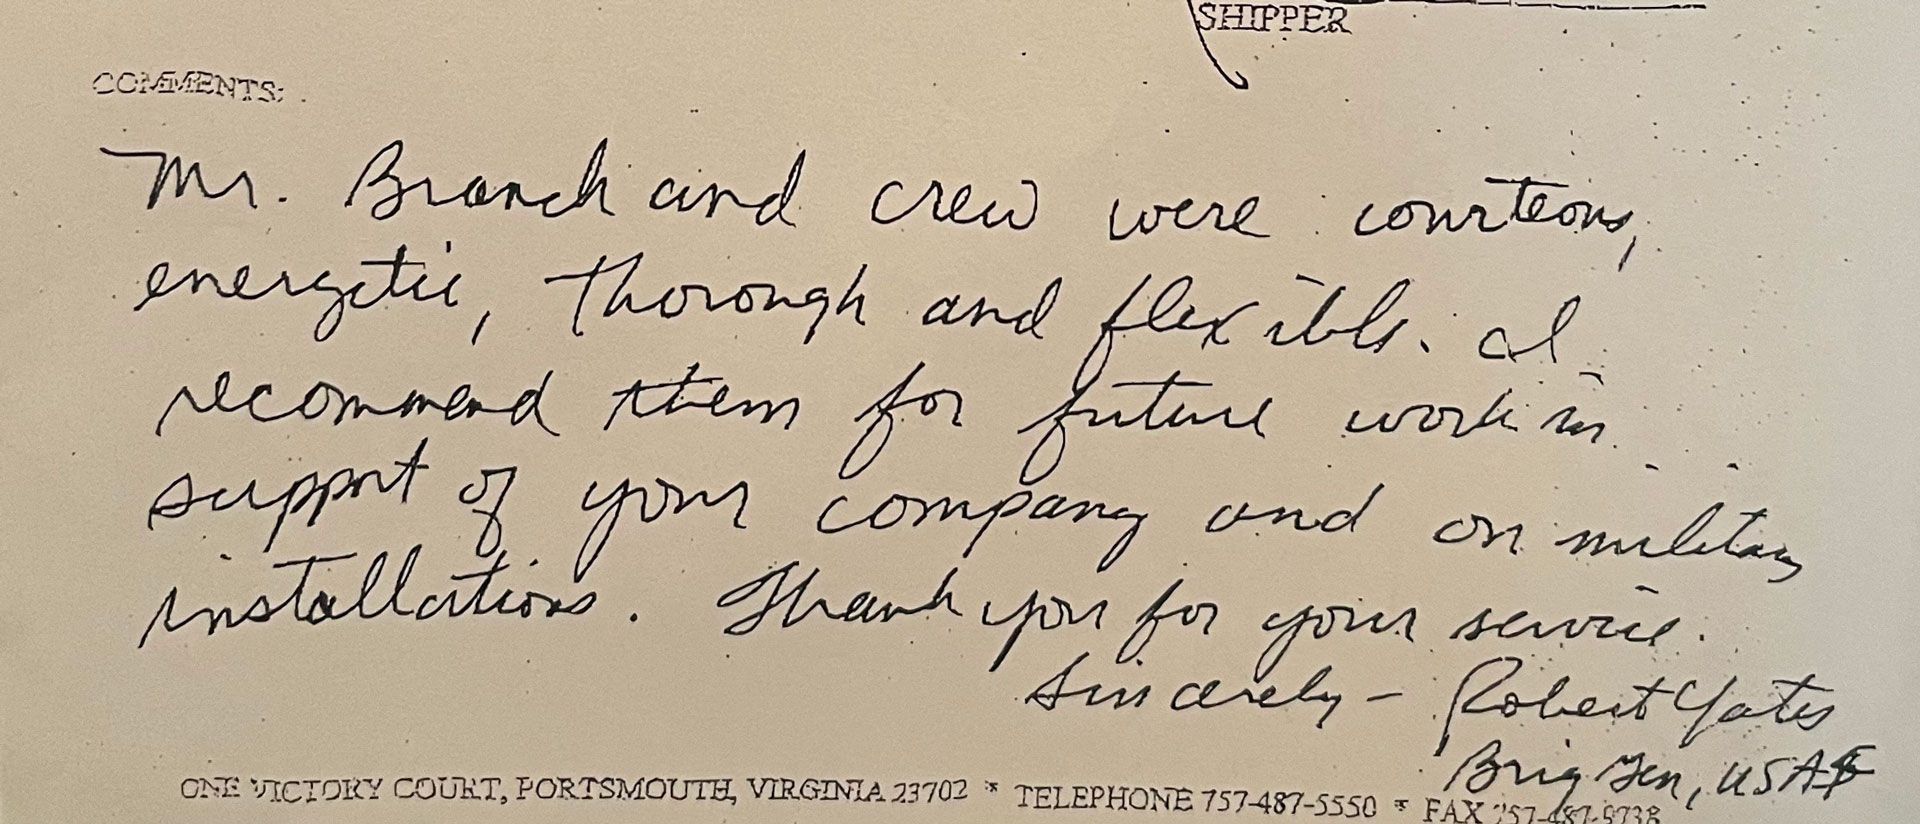 SHIPPER
COMMENTS:
Mr. Branch and crew were courteous,
energetic, thorough and flexible. I
recommend them for future work in
support of your company and on military
installations. Thank you for your service.
Sincerely - Robert Yates
Brig Gen, USAF
ONE VICTORY COURT, PORTSMOUTH, VIRGINIA 23702 * TELEPHONE 757-487-5550 * FAX 757-487-9738